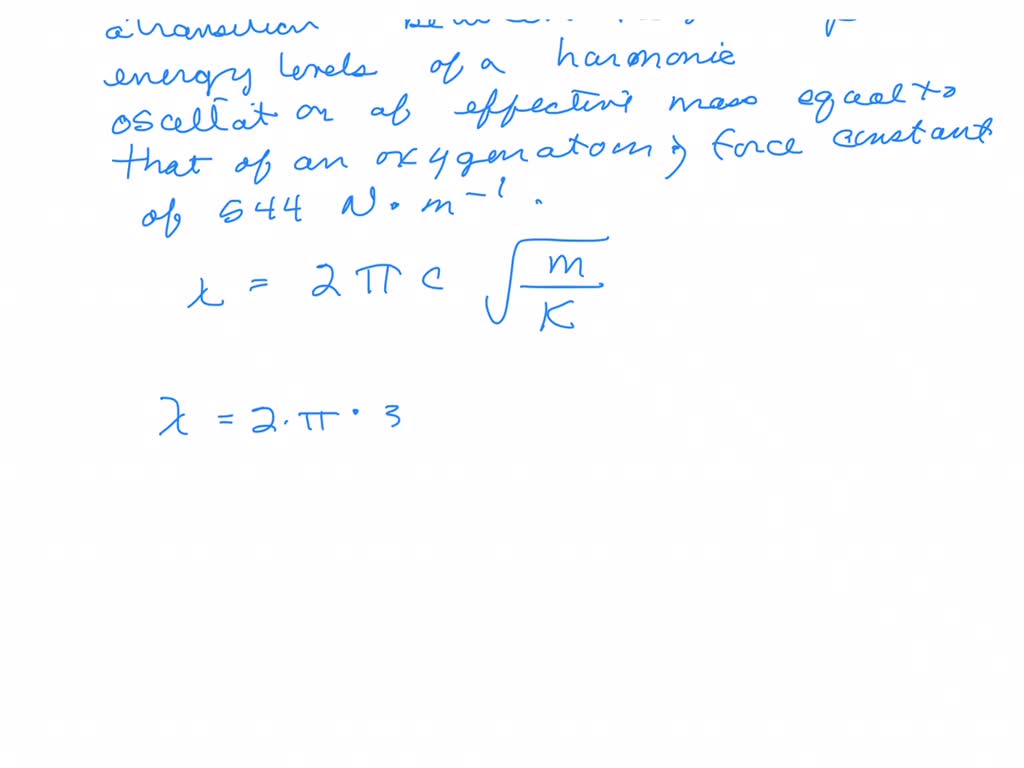 a transition
energy levels of a harmonic
oscellat or of effective mass equal to
that of an oxygen atom & force constant
of 544 N · m⁻¹ .
λ = 2 π c √(m/K)
λ = 2 · π · 3